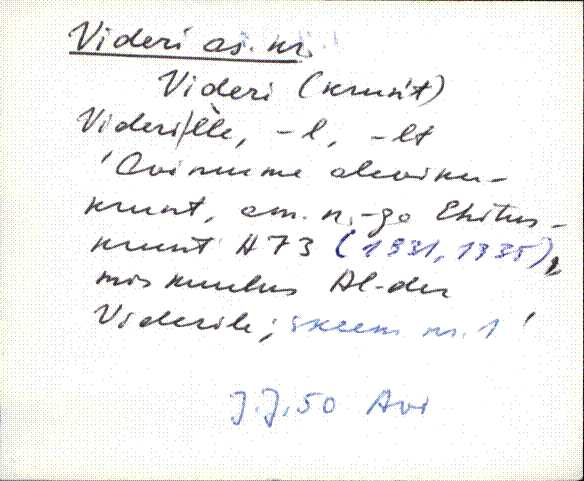 Videri as. nr.
Videri (krunt)
Videri/lle, -l, -lt
'Avinurme aleviku-
krunt, em. n.-ga Ehitus-
krunt A73 (1931, 1935),
mis kuulus Al-der
Viderile; skeem nr. 1'
J.J. 50 Avi